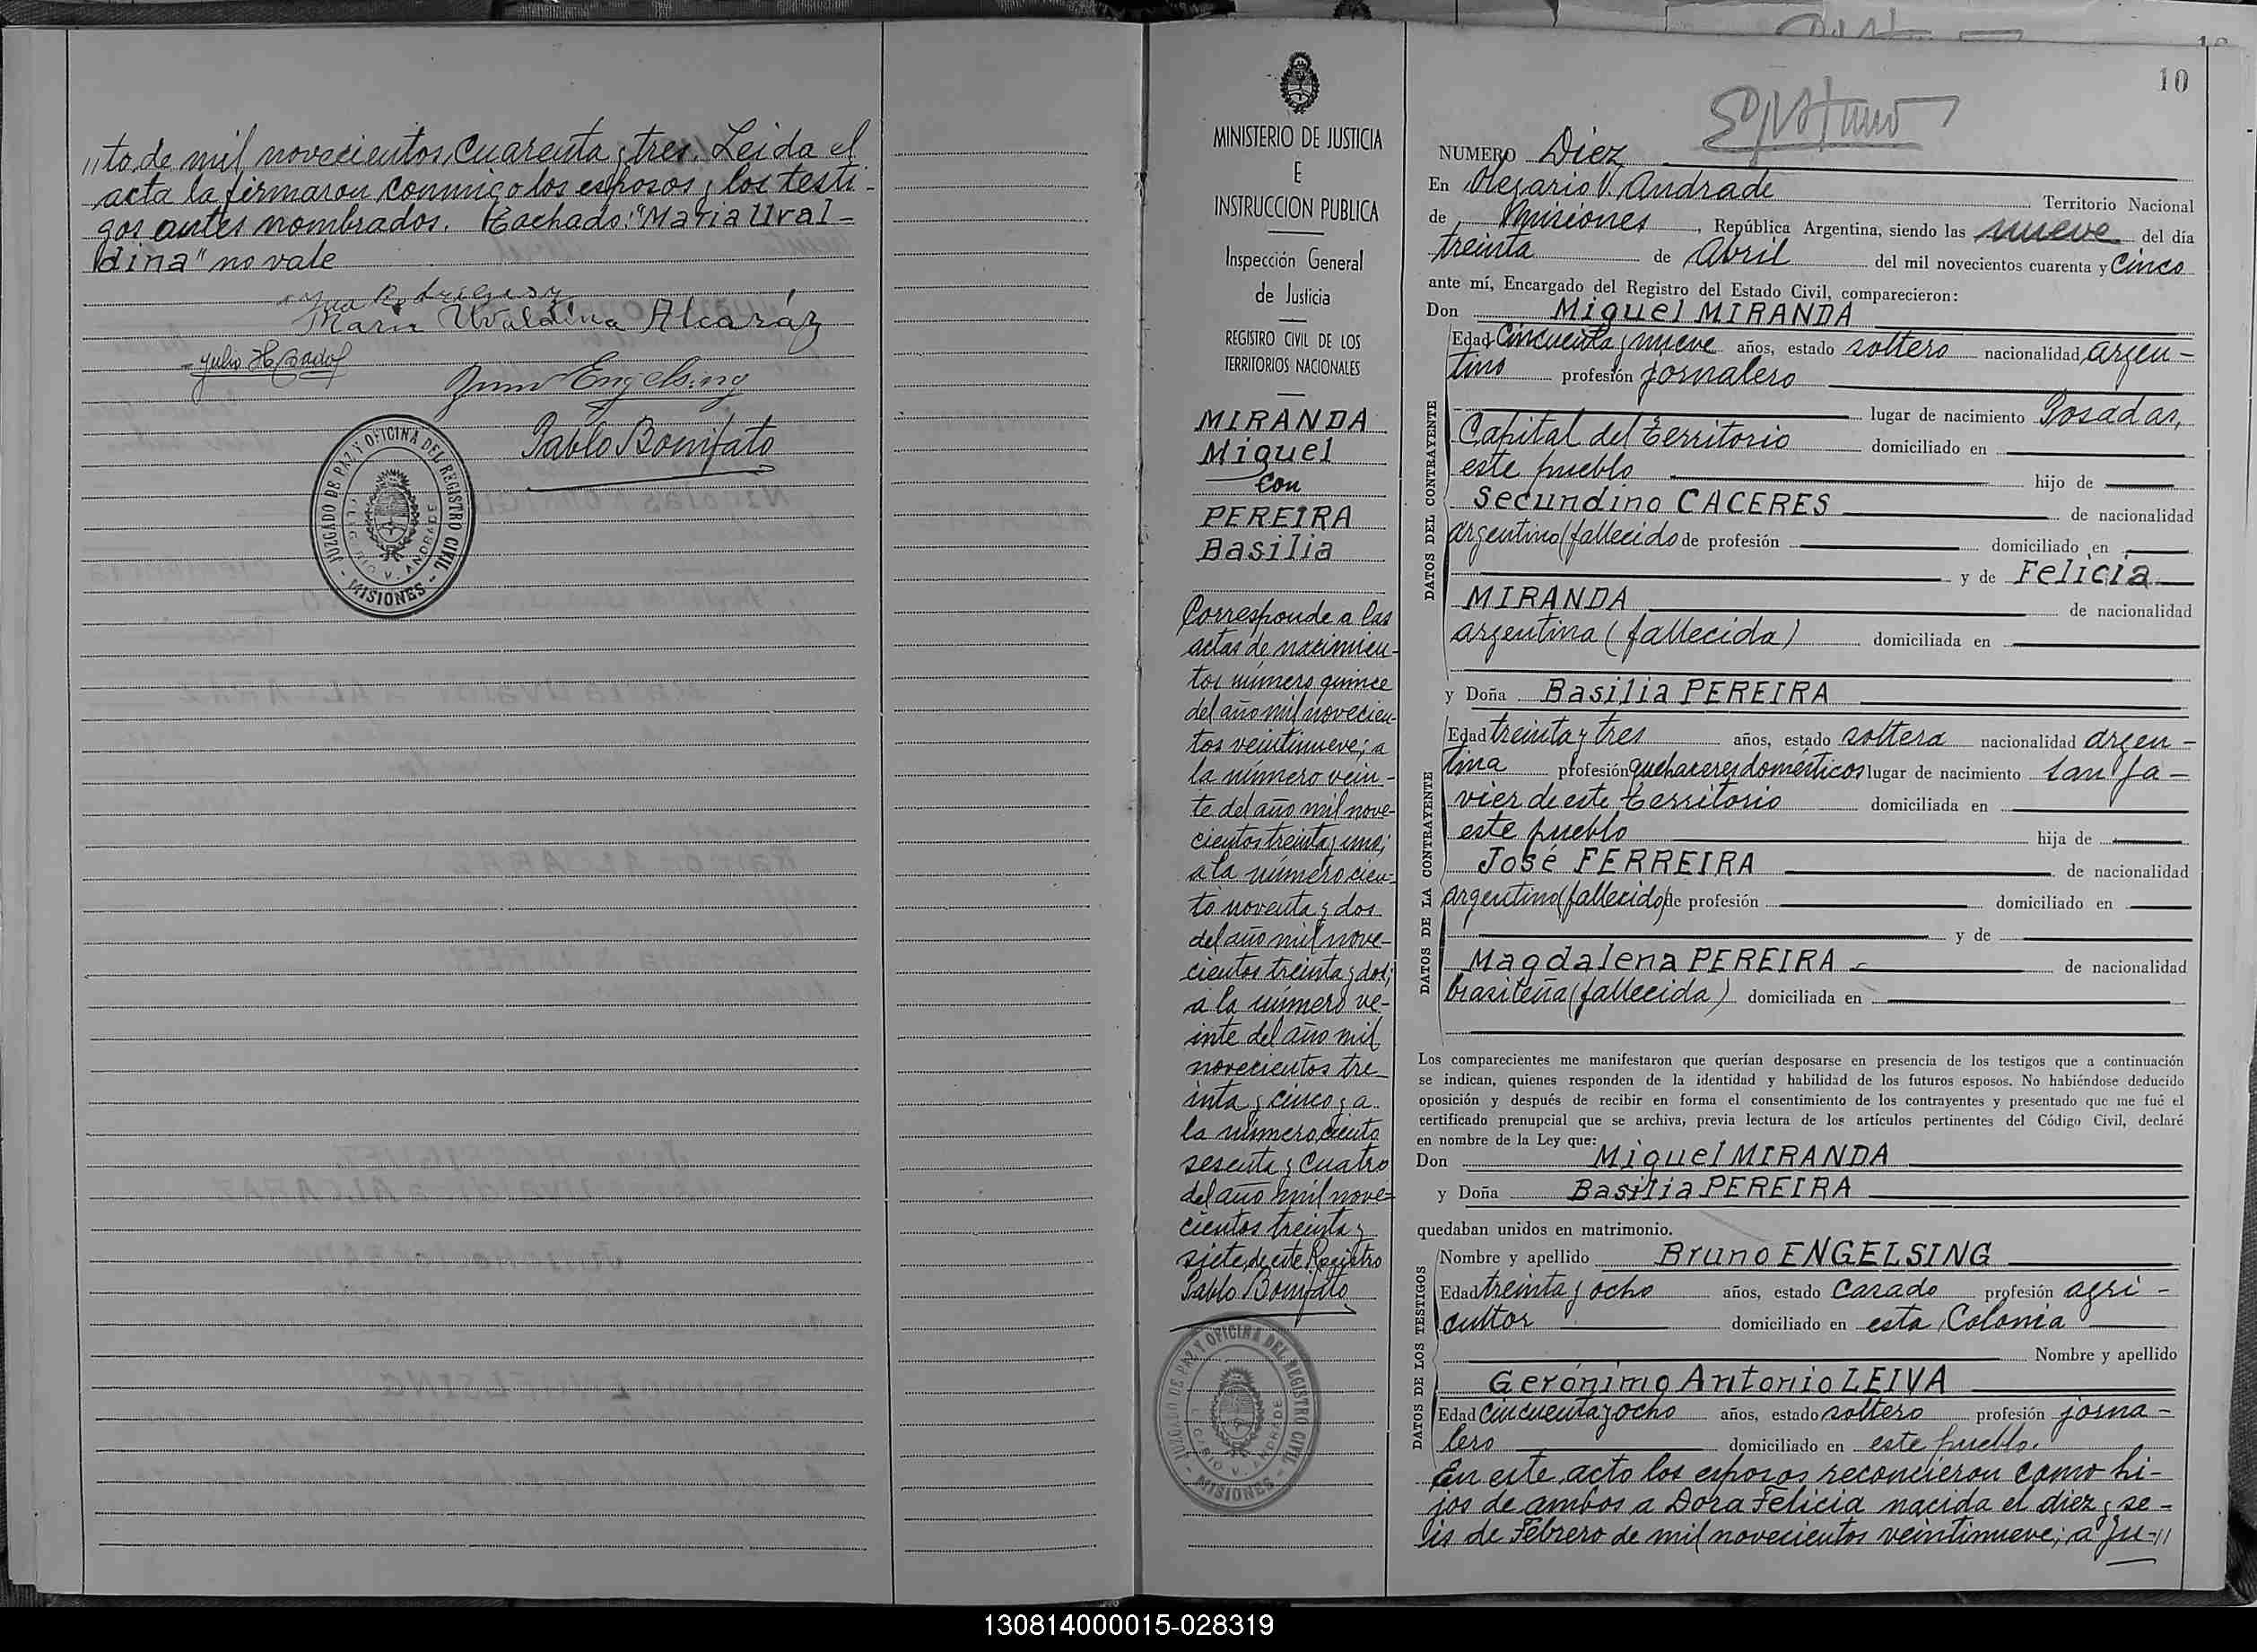 "to de mil novecientos, cuarenta y tres. Leida el
acta la firmaron conmigo los esposos y los testi-
gos antes nombrados. Tachado: "Maria Uval-
dina" no vale
Maria Uvaldina Alcaráz
Julio H.
Bruno Engelsing
Pablo Bonifato
JUZGADO DE PAZ Y OFICINA DEL REGISTRO CIVIL
OLEGARIO V. ANDRADE
- MISIONES -
MINISTERIO DE JUSTICIA
E
INSTRUCCION PUBLICA
Inspección General
de Justicia
REGISTRO CIVIL DE LOS
TERRITORIOS NACIONALES
MIRANDA
Miguel
con
PEREIRA
Basilia
Corresponde a las
actas de nacimien-
tos número quince
del año mil novecien-
tos veintinueve; a
la número vein-
te del año mil nove-
cientos treinta y uno;
a la número cien-
to noventa y dos
del año mil nove-
cientos treinta y dos;
a la número ve-
inte del año mil
novecientos tre-
inta y cinco y a
la número ciento
sesenta y cuatro
del año mil nove-
cientos treinta y
siete de este Registro
Pablo Bonifato
JUZGADO DE PAZ Y OFICINA DEL REGISTRO CIVIL
OLEGARIO V. ANDRADE
- MISIONES -
10
NUMERO Diez
En Olegario V. Andrade Territorio Nacional
de Misiones, República Argentina, siendo las nueve del día
treinta de Abril del mil novecientos cuarenta y cinco
ante mí, Encargado del Registro del Estado Civil, comparecieron:
Don Miguel MIRANDA
DATOS DEL CONTRAYENTE
Edad Cincuenta y nueve años, estado soltero nacionalidad argen-
tino profesión jornalero
lugar de nacimiento Posadas,
Capital del Territorio domiciliado en
este pueblo hijo de
Secundino CACERES de nacionalidad
argentino (fallecido de profesión domiciliado en
y de Felicia
MIRANDA de nacionalidad
argentina (fallecida) domiciliada en
y Doña Basilia PEREIRA
DATOS DE LA CONTRAYENTE
Edad treinta y tres años, estado soltera nacionalidad argen-
tina profesión quehaceres domésticos lugar de nacimiento San Ja-
vier de este Territorio domiciliada en
este pueblo hija de
José FERREIRA de nacionalidad
argentino (fallecido) de profesión domiciliado en
y de
Magdalena PEREIRA de nacionalidad
brasileña (fallecida) domiciliada en
Los comparecientes me manifestaron que querían desposarse en presencia de los testigos que a continuación
se indican, quienes responden de la identidad y habilidad de los futuros esposos. No habiéndose deducido
oposición y después de recibir en forma el consentimiento de los contrayentes y presentado que me fué el
certificado prenupcial que se archiva, previa lectura de los artículos pertinentes del Código Civil, declaré
en nombre de la Ley que:
Don Miguel MIRANDA
y Doña Basilia PEREIRA
quedaban unidos en matrimonio.
DATOS DE LOS TESTIGOS
Nombre y apellido Bruno ENGELSING
Edad treinta y ocho años, estado casado profesión agri-
cultor domiciliado en esta Colonia
Nombre y apellido
Gerónimo Antonio LEIVA
Edad cincuenta y ocho años, estado soltero profesión jorna-
lero domiciliado en este pueblo.
En este acto los esposos reconocieron como hi-
jos de ambos a Dora Felicia nacida el diez y se-
is de Febrero de mil novecientos veintinueve; a Ju-"
130814000015-028319